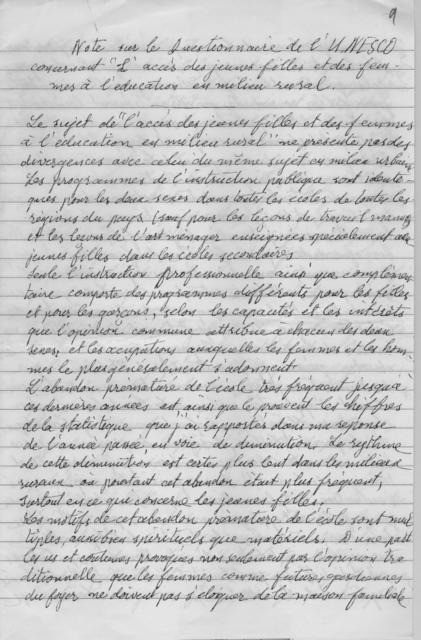 9
Note sur le Questionnaire de l'UNESCO
concernant "L'accès des jeunes filles et des fem-
mes à l'education en milieu rural.
Le sujet de "l'accès des jeunes filles et des femmes
à l'éducation en milieu rural" ne présente pas des
divergences avec celui du même sujet en milieu urbain
Les programmes de l'instruction publique sont identi-
ques pour les deux sexes dans toutes les écoles de toutes les
régions du pays (sauf pour les leçons de travail manuel
et les leçons de l'art ménager enseignées spécialement aux
jeunes filles dans les écoles secondaires
Seule l'instruction professionnelle ainsi que complémen-
taire comporte des programmes différents pour les filles
et pour les garçons, selon les capacités et les intérêts
que l'opinion commune attribue à chacun des deux
sexes, et les occupations auxquelles les femmes et les hom-
mes le plus généralement s'adonnent.
L'abandon prématuré de l'école très fréquent jusqu'à
ces dernières années est, ainsi que le prouvent les chiffres
de la statistique que j'ai rapportés dans ma réponse
de l'année passée, en voie de diminution. Le rythme
de cette diminution est certes plus lent dans les milieux
ruraux, où pourtant cet abandon était plus fréquent,
surtout en ce que concerne les jeunes filles.
Les motifs de cet abandon prématuré de l'école sont mul-
tiples, aussi bien spirituels que matériels. D'une part
les us et coutumes provoqués non seulement par l'opinion tra
ditionnelle que les femmes comme futures gardiennes
du foyer ne doivent pas s'éloigner de la maison familiale